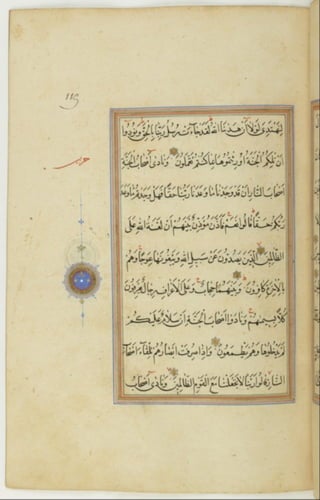 حزب
لنهتدي لولا أن هدانا الله لقد جاءت رسل ربنا بالحق ونودوا
أن تلكم الجنة أورثتموها بما كنتم تعملون ونادى أصحاب الجنة
أصحاب النار أن قد وجدنا ما وعدنا ربنا حقا فهل وجدتم ما وعد
ربكم حقا قالوا نعم فأذن مؤذن بينهم أن لعنة الله على
الظالمين الذين يصدون عن سبيل الله ويبغونها عوجا وهم
بالآخرة كافرون وبينهما حجاب وعلى الأعراف رجال يعرفون
كلا بسيماهم ونادوا أصحاب الجنة أن سلام عليكم
لم يدخلوها وهم يطمعون وإذا صرفت أبصارهم تلقاء أصحاب
النار قالوا ربنا لا تجعلنا مع القوم الظالمين ونادى أصحاب